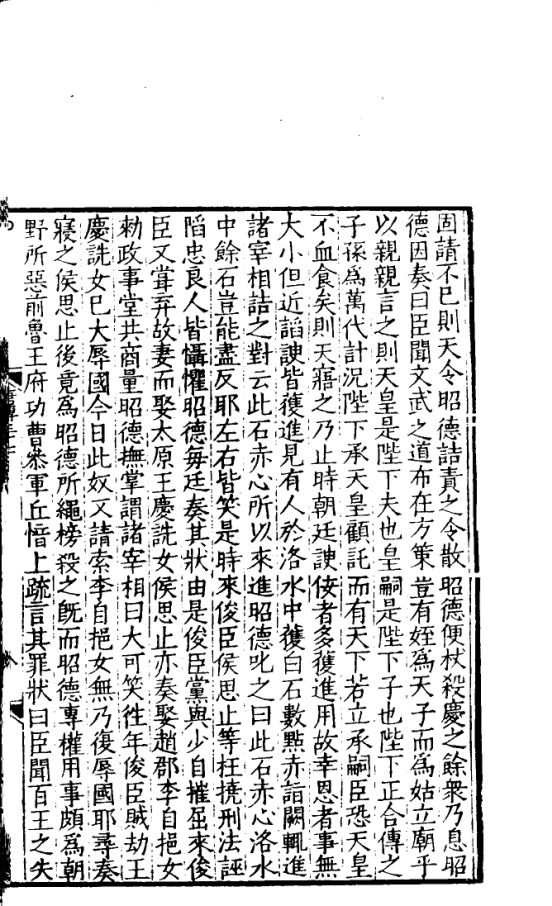 固請不已則天令昭德詰責之令散昭德便杖殺慶之餘衆乃息昭
德因奏曰臣聞文武之道布在方策豈有姪爲天子而爲姑立廟乎
以親親言之則天皇是陛下夫也皇嗣是陛下子也陛下正合傳之
子孫爲萬代計況陛下承天皇顧託而有天下若立承嗣臣恐天皇
不血食矣則天寤之乃止時朝廷諛佞者多獲進用故幸恩者事無
大小但近諂諛皆獲進見有人於洛水中獲白石數點赤詣闕輒進
諸宰相詰之對云此石赤心所以來進昭德叱之曰此石赤心洛水
中餘石豈能盡反耶左右皆笑是時來俊臣侯思止等枉撓刑法誣
陷忠良人皆懾懼昭德每廷奏其狀由是俊臣黨與少自摧屈來俊
臣又嘗弃故妻而娶太原王慶詵女侯思止亦奏娶趙郡李自挹女
勑政事堂共商量昭德撫掌謂諸宰相曰大可笑徃年俊臣賊劫王
慶詵女已大辱國今日此奴又請索李自挹女無乃復辱國耶尋奏
寢之侯思止後竟爲昭德所繩榜殺之旣而昭德專權用事頗爲朝
野所惡前魯王府功曹叅軍丘愔上疏言其罪狀曰臣聞百王之失